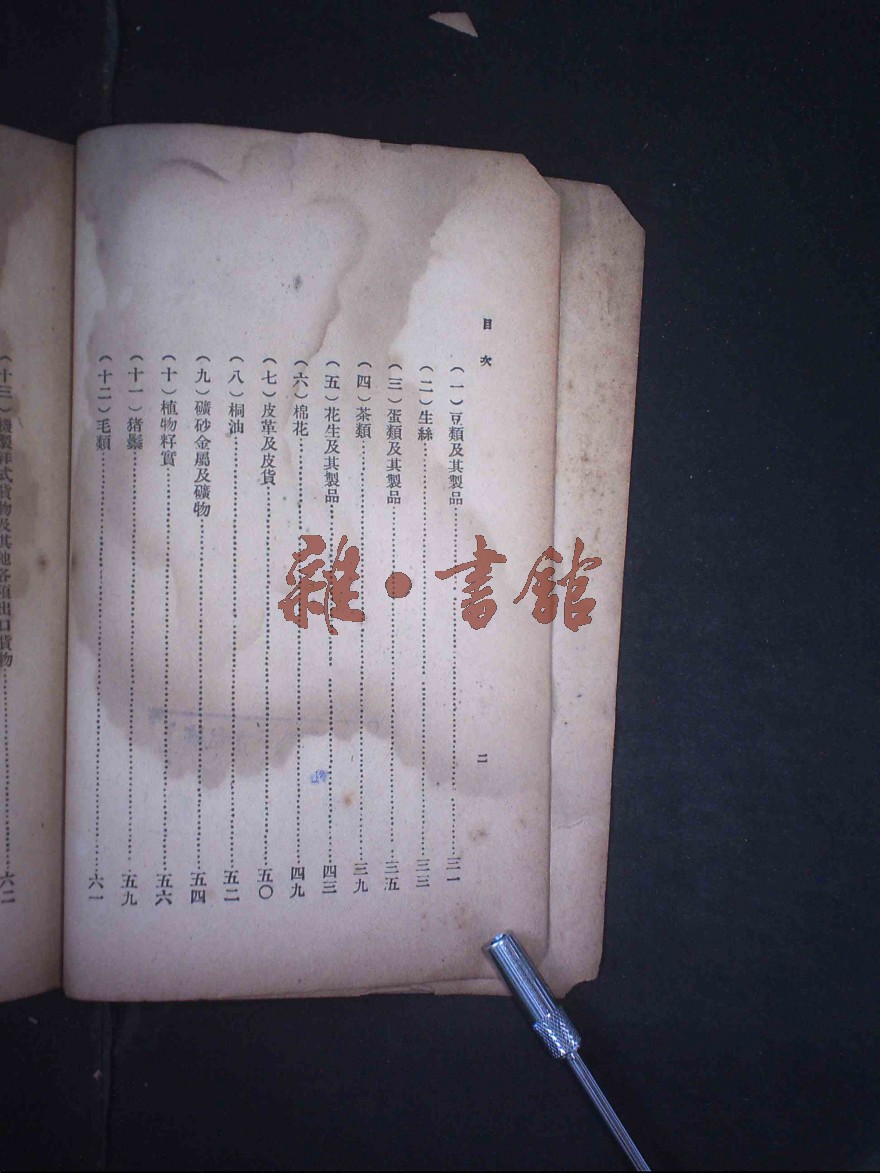 目次
二
（一）豆類及其製品……三一
（二）生絲……三三
（三）蛋類及其製品……三五
（四）茶類……三九
（五）花生及其製品……四三
（六）棉花……四九
（七）皮革及皮貨……五〇
（八）桐油……五二
（九）礦砂金屬及礦物……五四
（十）植物籽實……五六
（十一）猪鬃……五九
（十二）毛類……六一
（十三）機製洋式貨物及其他各項出口貨物……六二
雜·書館